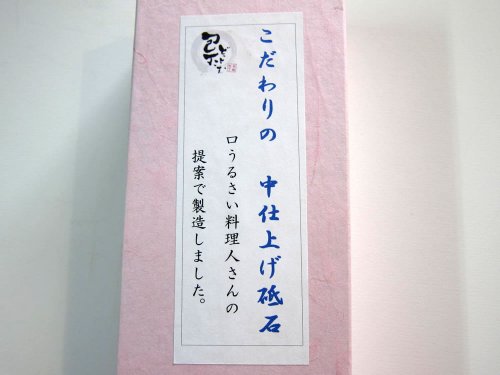 こだわりの 中仕上げ砥石
口うるさい料理人さんの
提案で製造しました。